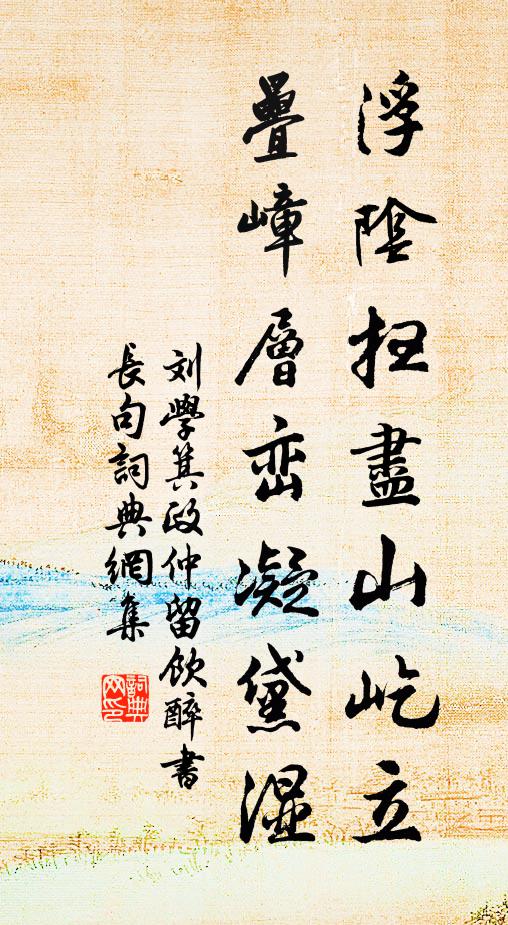 浮陰扫盡山屹立
疊嶂層峦凝黛濕
刘學箕政仲留飲醉書
長句詞典網集
詞典网印